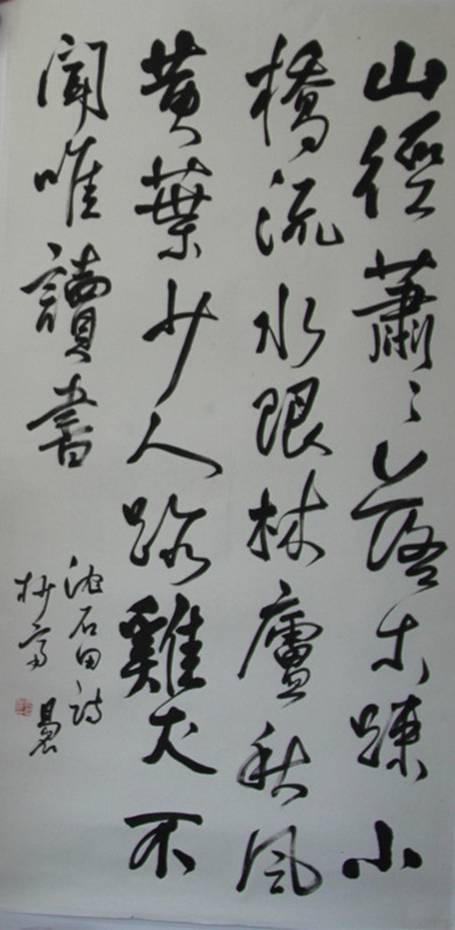 山徑蕭〻落木踈小
橋流水限林廬秋風
黃葉少人跡雞犬不
聞唯讀書
沈石田詩